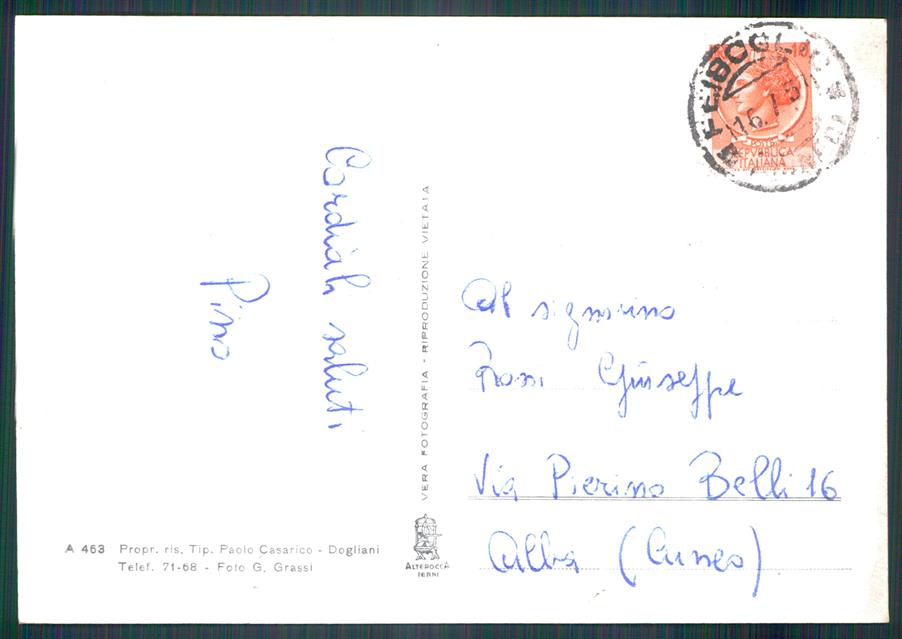 Cordiali saluti
Pino
VERA FOTOGRAFIA - RIPRODUZIONE VIETATA
A 463 Propr. ris. Tip. Paolo Casarico - Dogliani
Telef. 71-68 - Foto G. Grassi
ALTEROCCA
TERNI
POSTE
REPVBBLICA
ITALIANA
16.7.5
Al signorino
Rossi Giuseppe
Via Pierino Belli 16
Alba (Cuneo)